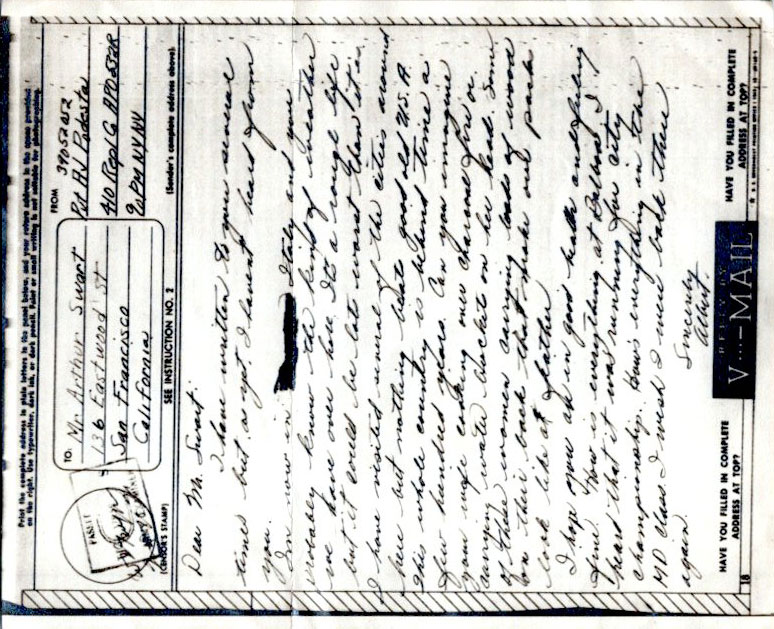 Print the complete address in plain letters in the panel below, and your return address in the space provided
on the right. Use typewriter, dark ink, or dark pencil. Faint or small writing is not suitable for photographing.
TO:
Mr. Arthur Swart
136 Eastwood St
San Francisco
California
FROM
39052052
Pvt A.J. Podesta
410 Repl G APO 532R
% PM NY NY
(CENSOR'S STAMP)
SEE INSTRUCTION NO. 2
(Sender's complete address above)
Dear Mr. Swart
I have written to you several
times but as yet I havent heard from
you.
Im now in Italy and you
probably know the kind of weather
we have over here. Its a rough life
but it could be lots worst then it is.
I have visited several of the cities around
here but nothing beats good old U.S.A.
this whole country is behind time a
few hundred years. Can you imagine
your wife cooking over charcoal fire or
carrying water bucket on her head. Some
of these women carring loads of wood
on their back that make out pack
look like a feather
I hope you are in good health and feeling
fine. How is everything at Balboa, I
heard that it was running for city
championship. Hows everything in the
MD class I wish I were back there
again.
Sincerly
Albert.
HAVE YOU FILLED IN COMPLETE
ADDRESS AT TOP?
REPLY BY
V···—MAIL
HAVE YOU FILLED IN COMPLETE
ADDRESS AT TOP?